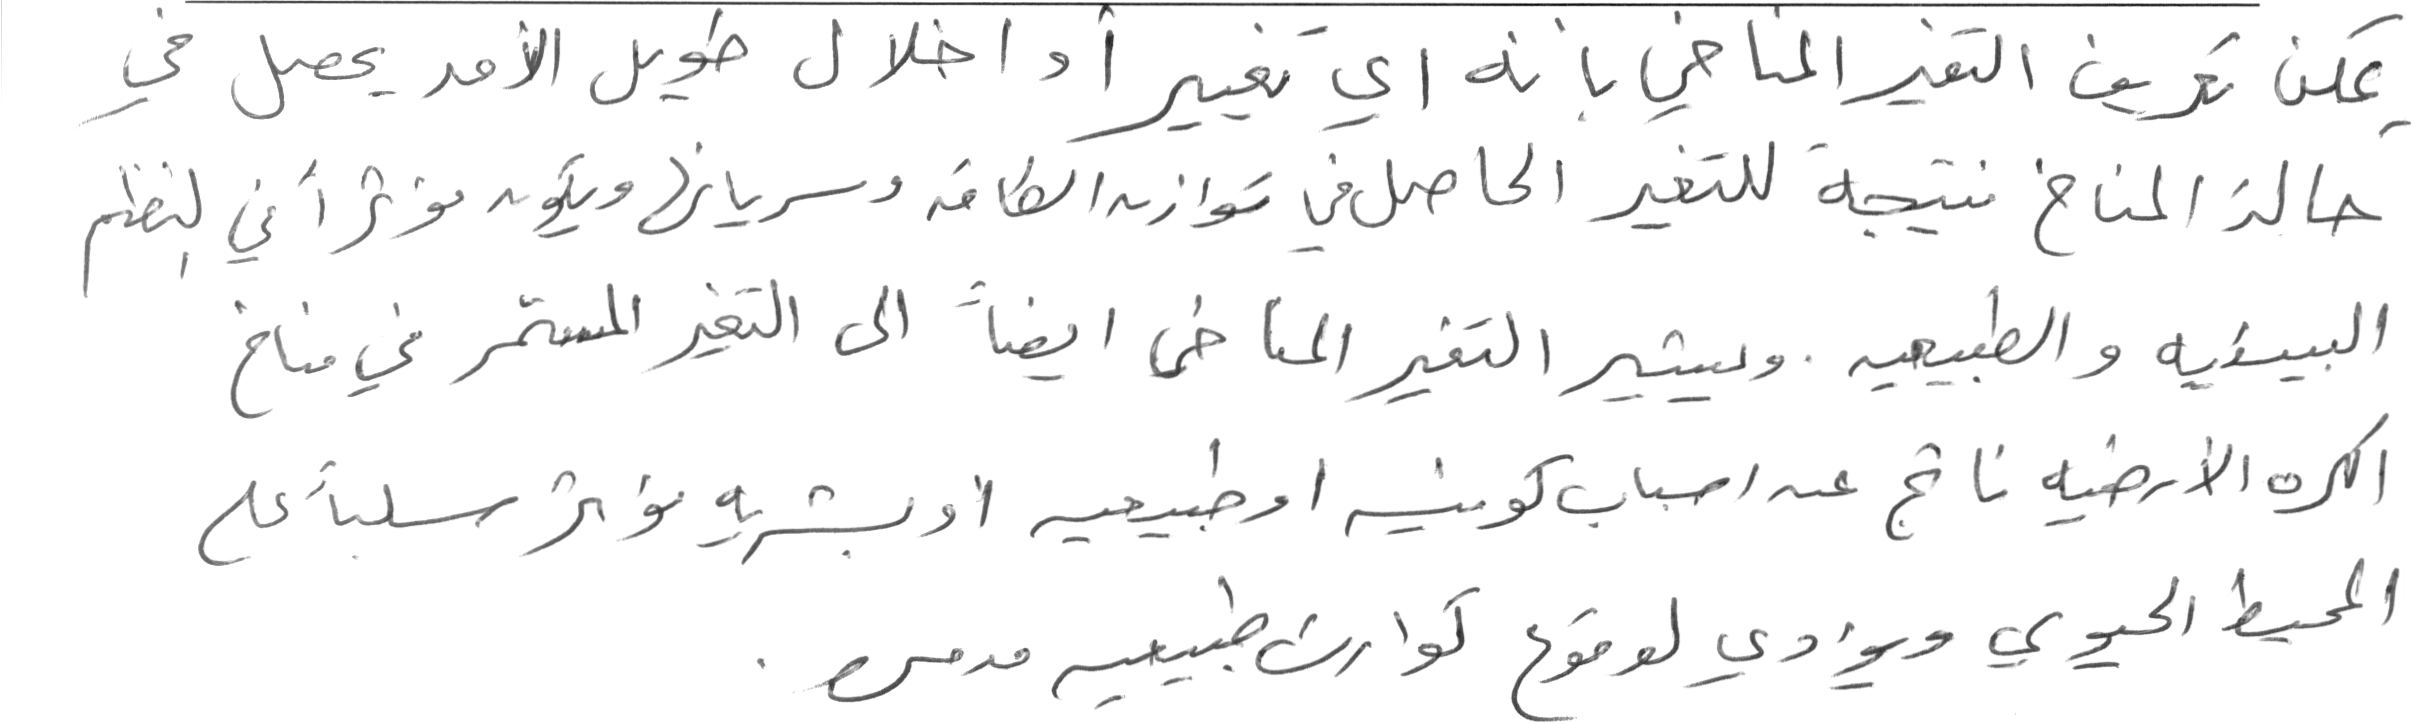 يمكن تعريف التغير المناخي بانه اي تغيير أو اخلال طويل الأمد يحصل في
حالة المناخ نتيجة للتغير الحاصل في توازن الطاقه وسريانها ويكون مؤثراً في النظم
البيئيه والطبيعيه . ويشير التغير المناخي ايضاً الى التغير المستمر في مناخ
الكره الأرضيه ناتج عن اسباب كونيه او طبيعيه او بشريه يؤثر سلباً على
المحيط الحيوي ويؤدي لوقوع كوارث طبيعيه مدمره .